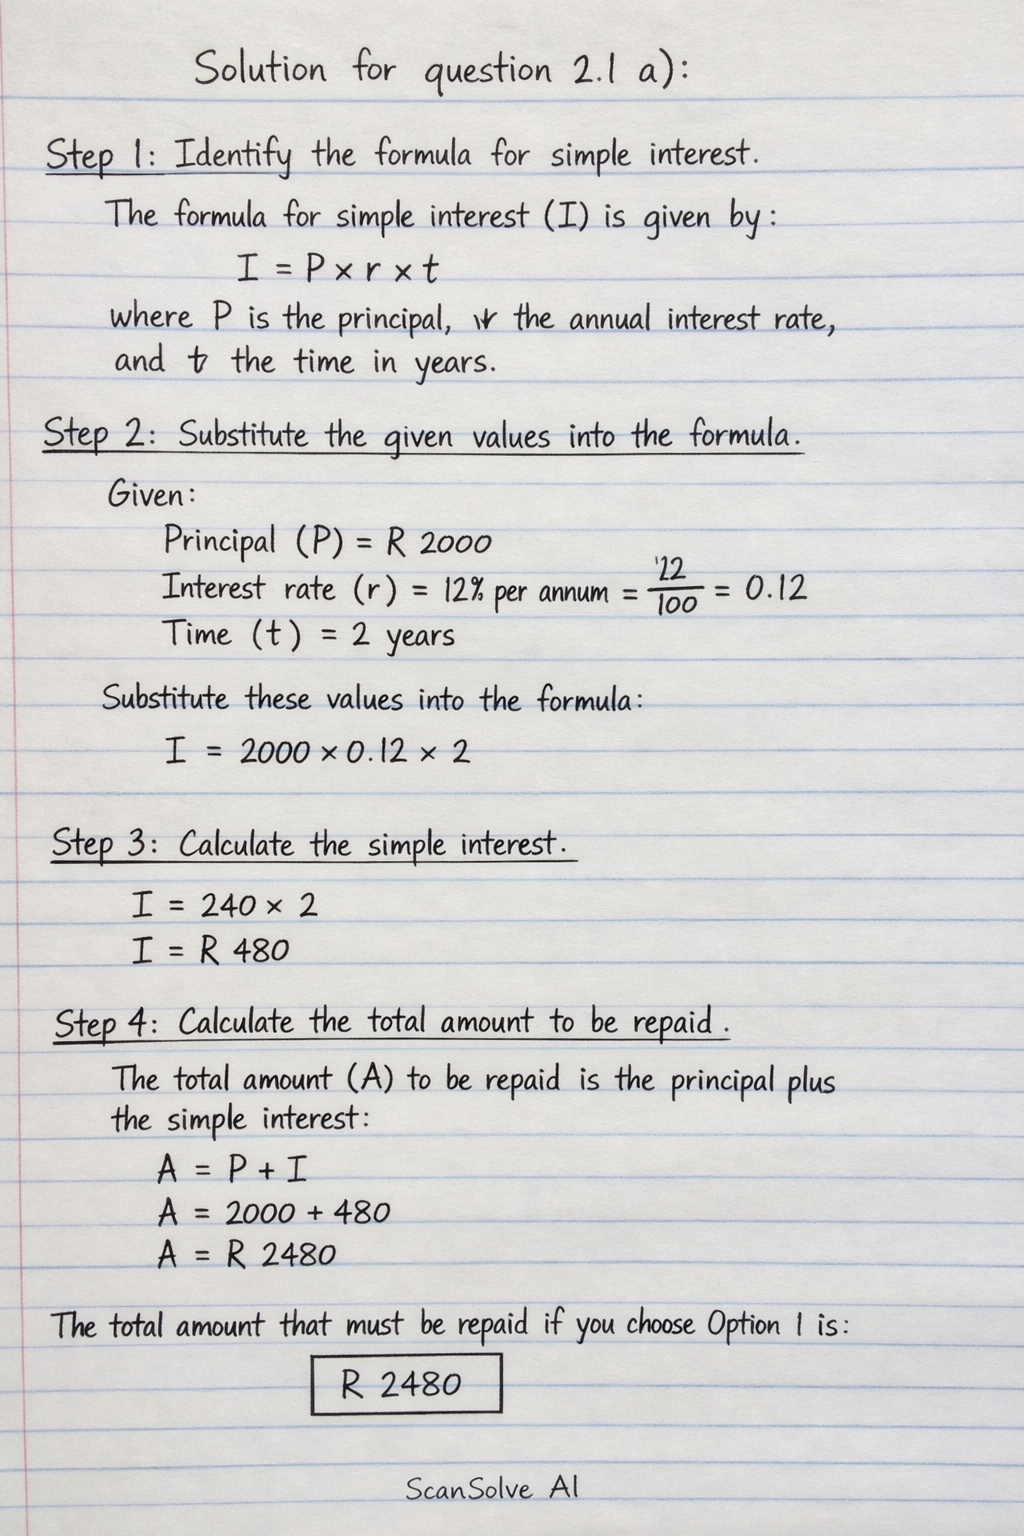 Solution for question 2.1 a):
Step 1: Identify the formula for simple interest.
The formula for simple interest (I) is given by:
I = P × r × t
where P is the principal, the annual interest rate,
and t the time in years.
Step 2: Substitute the given values into the formula.
Given:
Principal (P) = R 2000
Interest rate (r) = 12% per annum = '22/100 = 0.12
Time (t) = 2 years
Substitute these values into the formula:
I = 2000 × 0.12 × 2
Step 3: Calculate the simple interest.
I = 240 × 2
I = R 480
Step 4: Calculate the total amount to be repaid.
The total amount (A) to be repaid is the principal plus
the simple interest:
A = P + I
A = 2000 + 480
A = R 2480
The total amount that must be repaid if you choose Option 1 is:
R 2480
ScanSolve AI